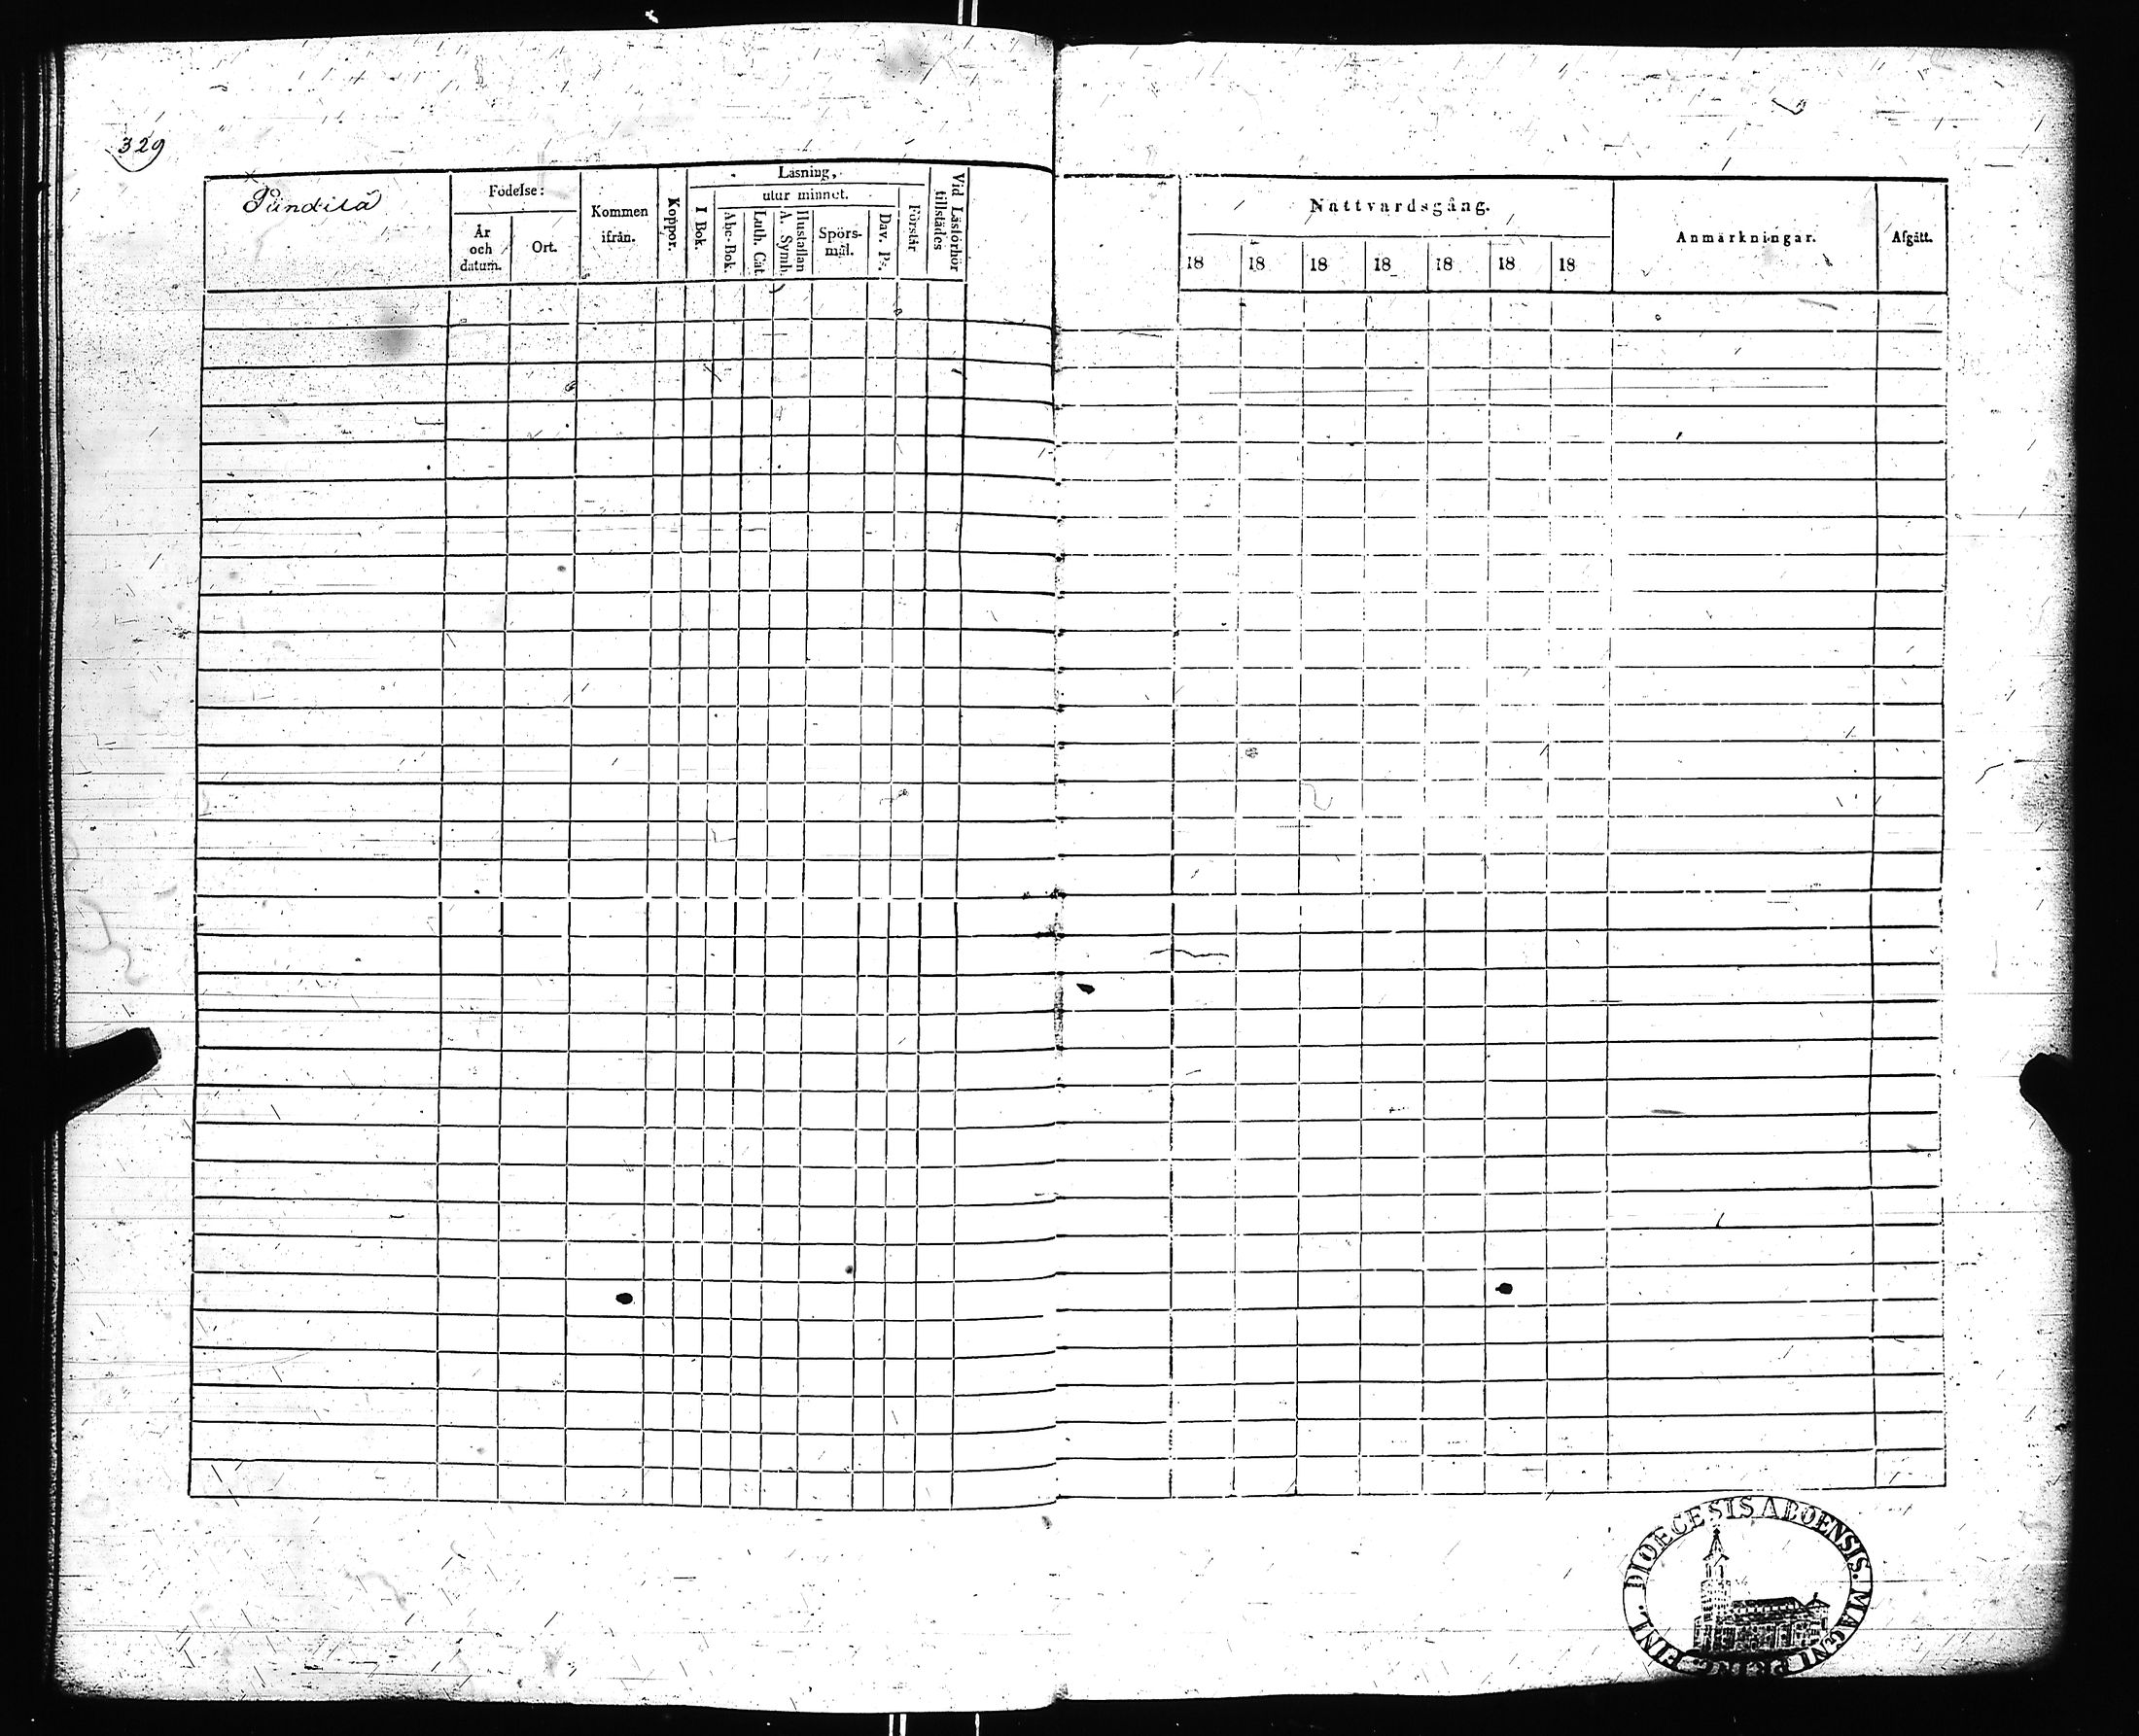 329
Pundila
Födelse:
År
och
datum.
Ort.
Kommen
ifrån.
Koppor.
Läsning,
utur minnet.
I Bok.
Abc-Bok.
Luth. Cat.
Hustaflan
A. Symb.
Spörs-
mål.
Dav. Ps.
Förstår
Vid Läsförhör
tillstädes
Nattvardsgång.
18 18 18 18 18 18 18
Anmärkningar.
Afgått.
DIOECESIS ABOENSIS. MAGNI PRINC. FINL.